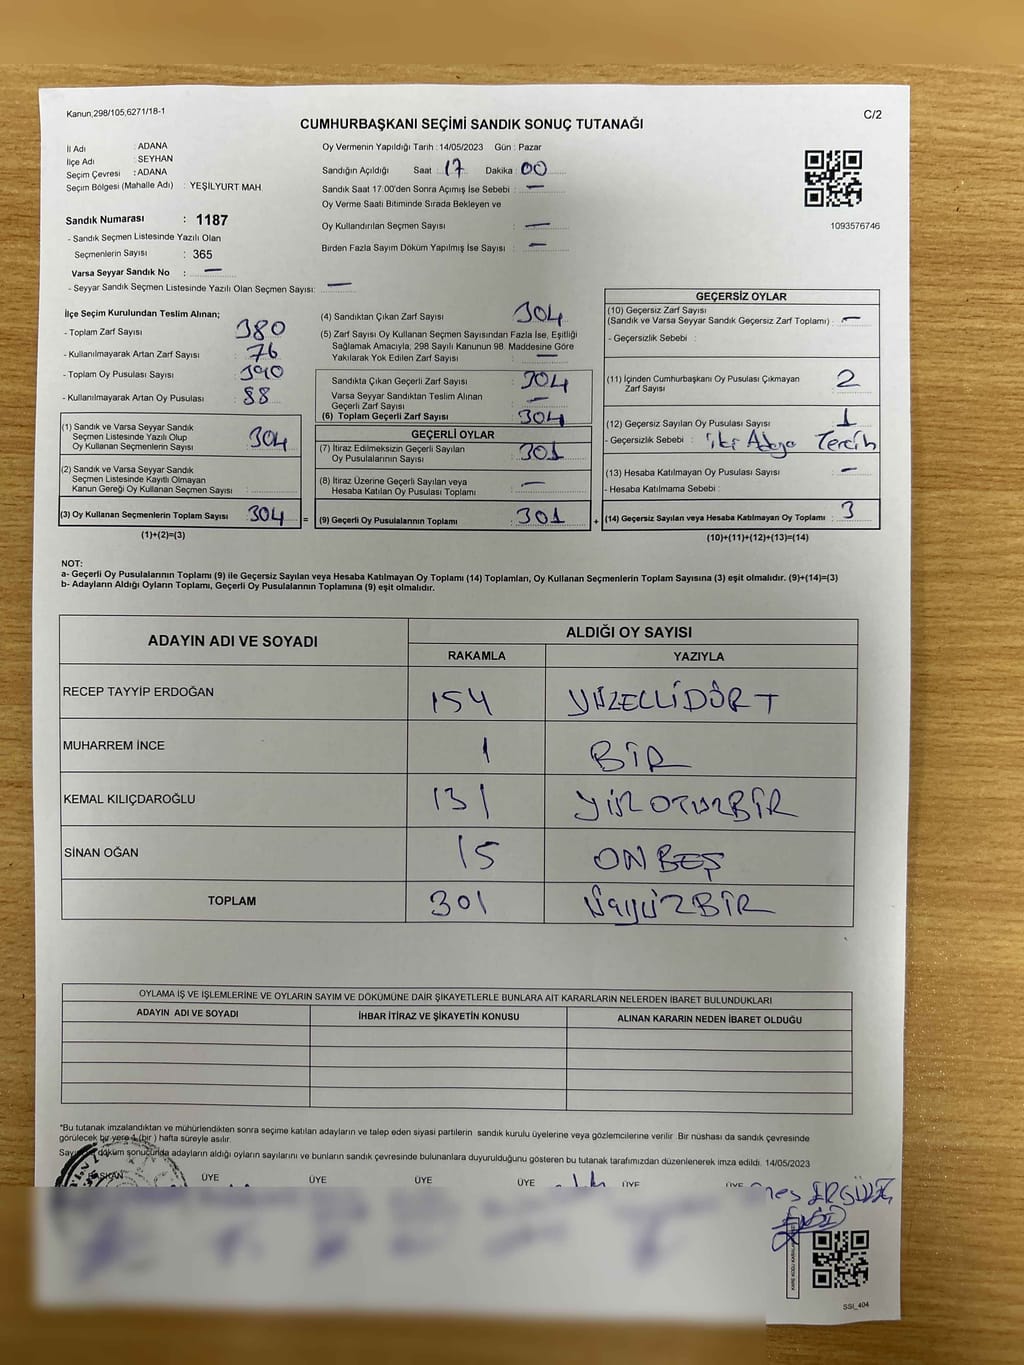 Kanun,298/105,6271/18-1
C/2
CUMHURBAŞKANI SEÇİMİ SANDIK SONUÇ TUTANAĞI
İl Adı : ADANA
İlçe Adı : SEYHAN
Seçim Çevresi : ADANA
Seçim Bölgesi (Mahalle Adı) : YEŞİLYURT MAH.
Sandık Numarası : 1187
- Sandık Seçmen Listesinde Yazılı Olan
Seçmenlerin Sayısı : 365
Varsa Seyyar Sandık No : —
- Seyyar Sandık Seçmen Listesinde Yazılı Olan Seçmen Sayısı: —
Oy Vermenin Yapıldığı Tarih : 14/05/2023 Gün : Pazar
Sandığın Açıldığı Saat : 17 Dakika : 00
Sandık Saat 17.00'den Sonra Açımış İse Sebebi : —
Oy Verme Saati Bitiminde Sırada Bekleyen ve
Oy Kullandırılan Seçmen Sayısı : —
Birden Fazla Sayım Döküm Yapılmış İse Sayısı : —
1093576746
İlçe Seçim Kurulundan Teslim Alınan;
- Toplam Zarf Sayısı : 380
- Kullanılmayarak Artan Zarf Sayısı : 76
- Toplam Oy Pusulası Sayısı : 390
- Kullanılmayarak Artan Oy Pusulası : 88
(1) Sandık ve Varsa Seyyar Sandık
Seçmen Listesinde Yazılı Olup
Oy Kullanan Seçmenlerin Sayısı : 304
(2) Sandık ve Varsa Seyyar Sandık
Seçmen Listesinde Kayıtlı Olmayan
Kanun Gereği Oy Kullanan Seçmen Sayısı :
(3) Oy Kullanan Seçmenlerin Toplam Sayısı : 304
(1)+(2)=(3)
(4) Sandıktan Çıkan Zarf Sayısı : 304
(5) Zarf Sayısı Oy Kullanan Seçmen Sayısından Fazla İse, Eşitliği
Sağlamak Amacıyla, 298 Sayılı Kanunun 98. Maddesine Göre
Yakılarak Yok Edilen Zarf Sayısı : —
Sandıkta Çıkan Geçerli Zarf Sayısı : 304
Varsa Seyyar Sandıktan Teslim Alınan
Geçerli Zarf Sayısı : —
(6) Toplam Geçerli Zarf Sayısı : 304
GEÇERLİ OYLAR
(7) İtiraz Edilmeksizin Geçerli Sayılan
Oy Pusulalarının Sayısı : 301
(8) İtiraz Üzerine Geçerli Sayılan veya
Hesaba Katılan Oy Pusulası Toplamı : —
= (9) Geçerli Oy Pusulalarının Toplamı : 301 +
GEÇERSİZ OYLAR
(10) Geçersiz Zarf Sayısı
(Sandık ve Varsa Seyyar Sandık Geçersiz Zarf Toplamı) : —
- Geçersizlik Sebebi :
(11) İçinden Cumhurbaşkanı Oy Pusulası Çıkmayan
Zarf Sayısı : 2
(12) Geçersiz Sayılan Oy Pusulası Sayısı : 1
- Geçersizlik Sebebi : iki Adaya Tercih
(13) Hesaba Katılmayan Oy Pusulası Sayısı : —
- Hesaba Katılmama Sebebi :
(14) Geçersiz Sayılan veya Hesaba Katılmayan Oy Toplamı : 3
(10)+(11)+(12)+(13)=(14)
NOT:
a- Geçerli Oy Pusulalarının Toplamı (9) ile Geçersiz Sayılan veya Hesaba Katılmayan Oy Toplamı (14) Toplamları, Oy Kullanan Seçmenlerin Toplam Sayısına (3) eşit olmalıdır. (9)+(14)=(3)
b- Adayların Aldığı Oyların Toplamı, Geçerli Oy Pusulalarının Toplamına (9) eşit olmalıdır.
ADAYIN ADI VE SOYADI
ALDIĞI OY SAYISI
RAKAMLA YAZIYLA
RECEP TAYYİP ERDOĞAN 154 YÜZELLİDÖRT
MUHARREM İNCE 1 BİR
KEMAL KILIÇDAROĞLU 131 YÜZ OTUZBİR
SİNAN OĞAN 15 ON BEŞ
TOPLAM 301 ÜÇYÜZBİR
OYLAMA İŞ VE İŞLEMLERİNE VE OYLARIN SAYIM VE DÖKÜMÜNE DAİR ŞİKAYETLERLE BUNLARA AİT KARARLARIN NELERDEN İBARET BULUNDUKLARI
ADAYIN ADI VE SOYADI İHBAR İTİRAZ VE ŞİKAYETİN KONUSU ALINAN KARARIN NEDEN İBARET OLDUĞU
*Bu tutanak imzalandıktan ve mühürlendikten sonra seçime katılan adayların ve talep eden siyasi partilerin sandık kurulu üyelerine veya gözlemcilerine verilir. Bir nüshası da sandık çevresinde
görülecek bir yere 1 (bir ) hafta süreyle asılır.
Sayım döküm sonucunda adayların aldığı oyların sayılarını ve bunların sandık çevresinde bulunanlara duyurulduğunu gösteren bu tutanak tarafımızdan düzenlenerek imza edildi. 14/05/2023
BAŞKAN ÜYE ÜYE ÜYE ÜYE ÜYE ÜYE
SSI_404